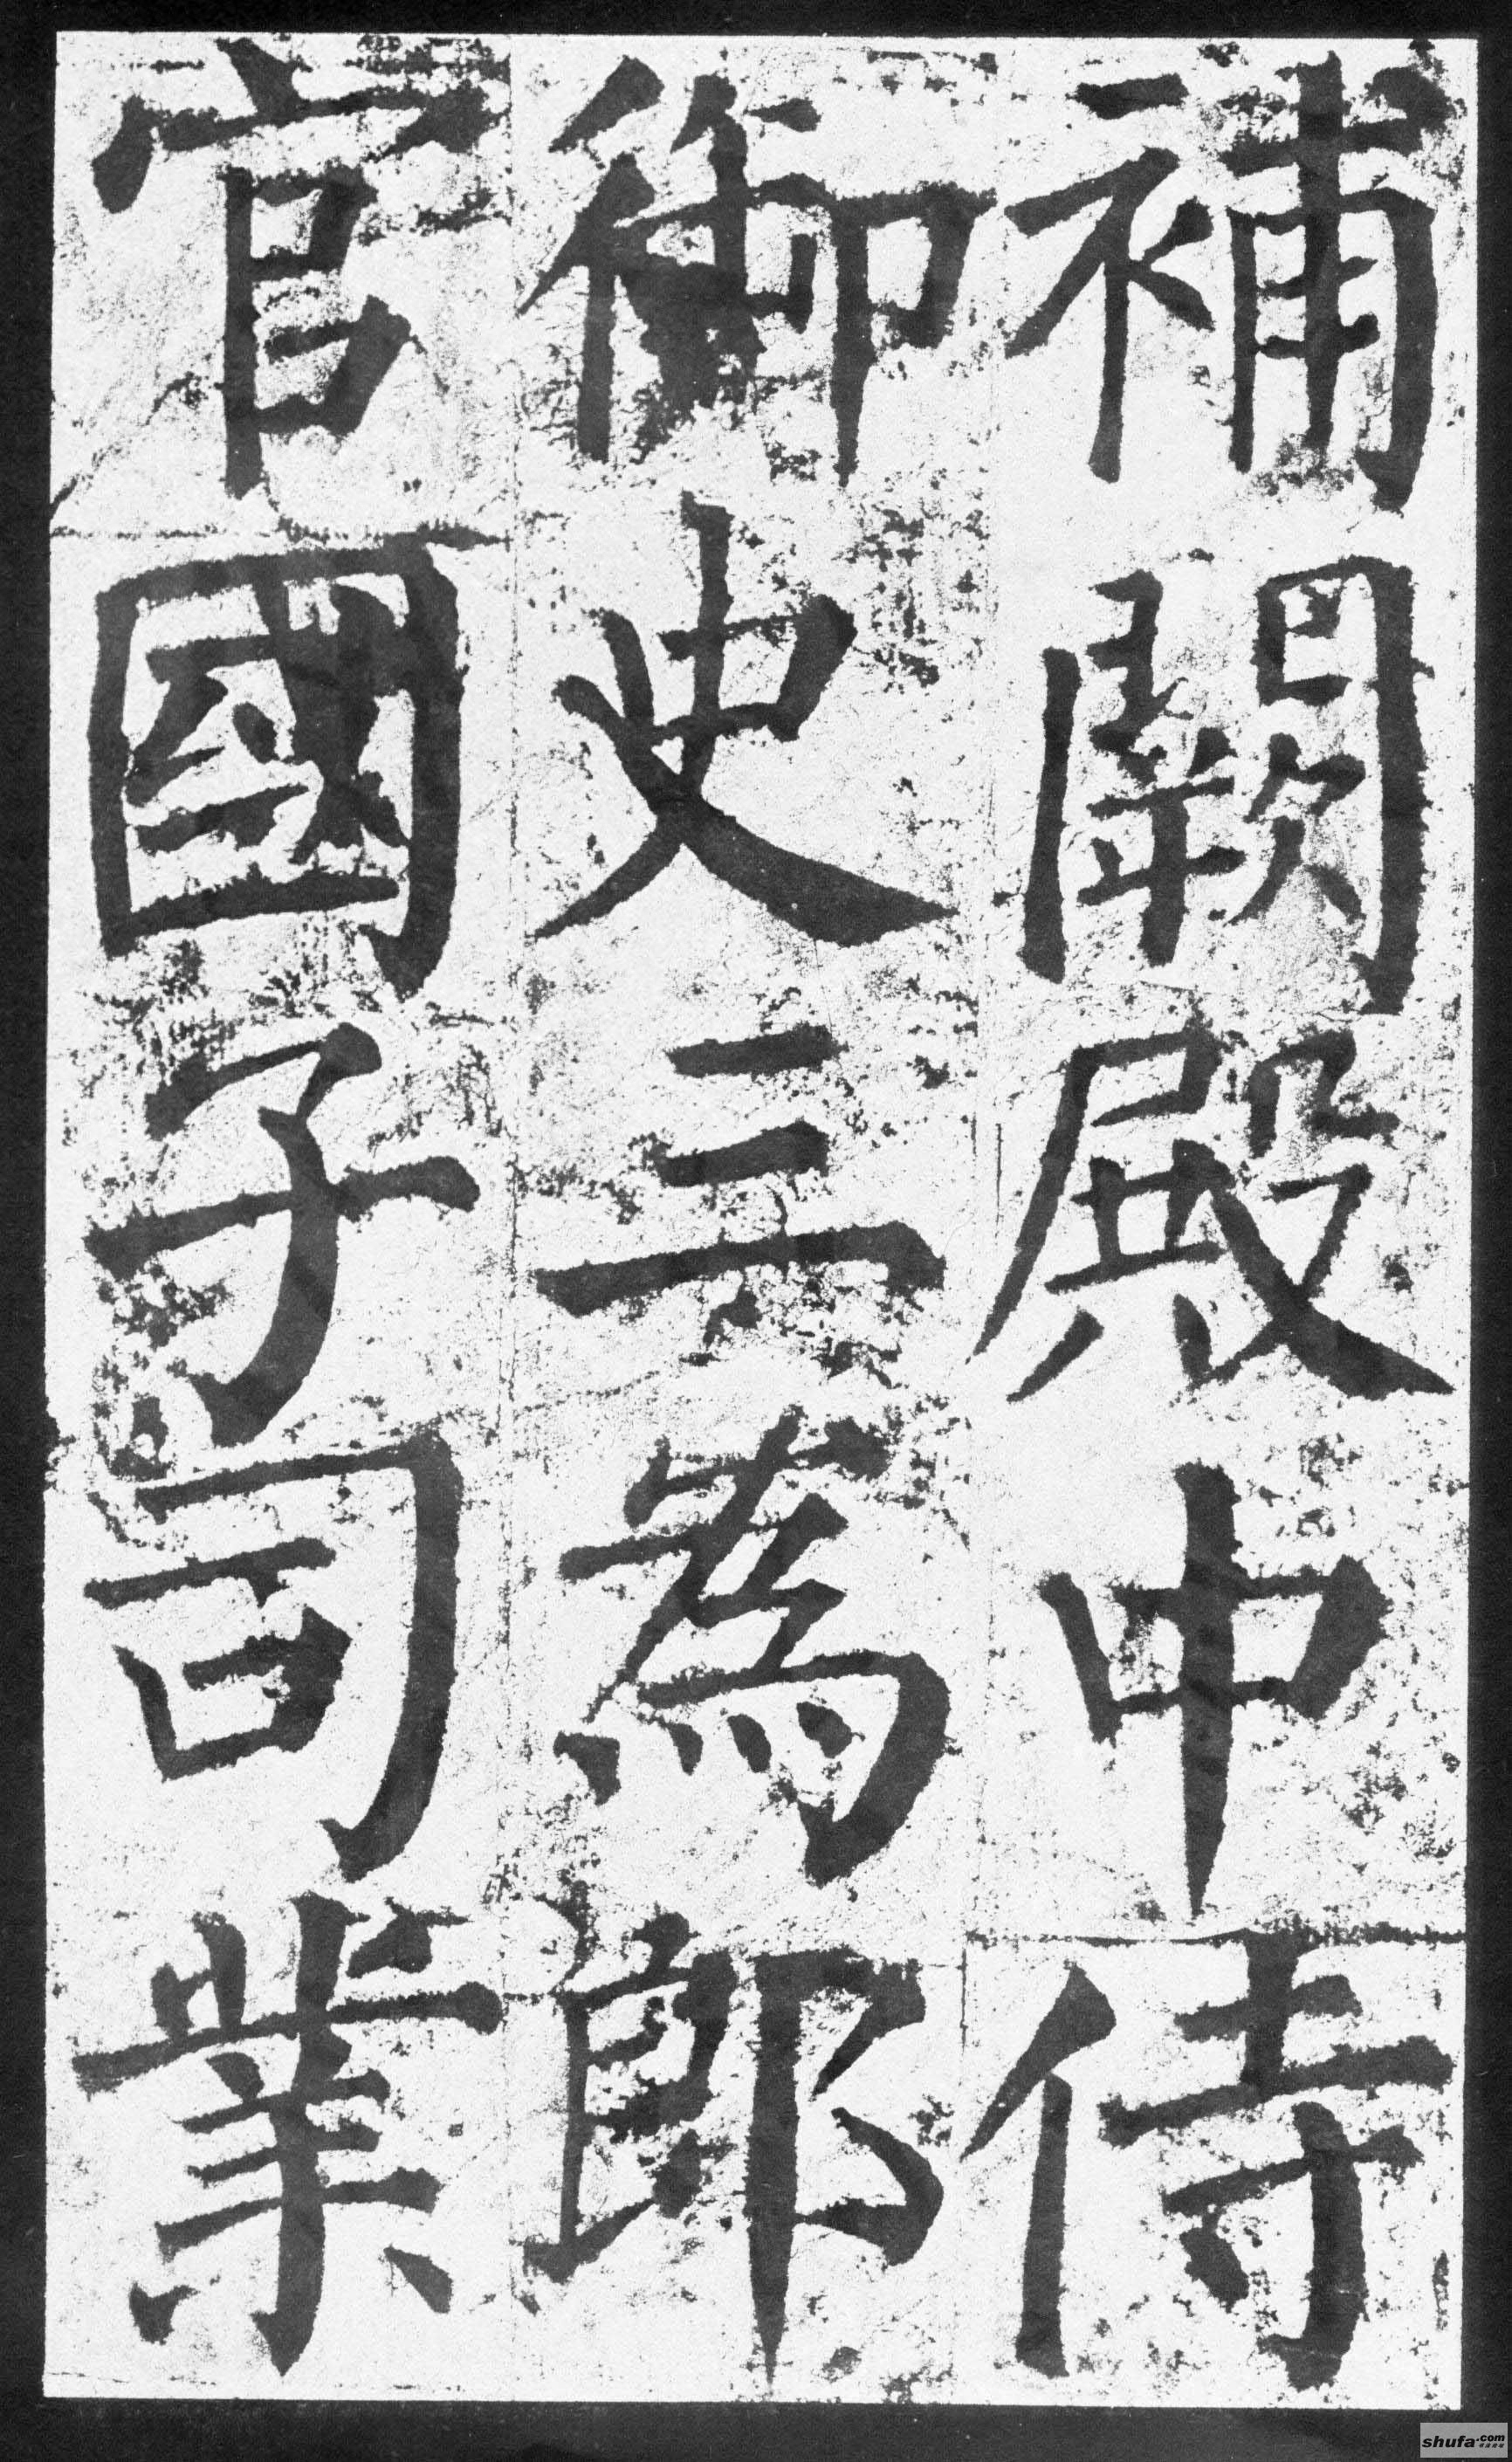 補闕殿中侍
御史三為郎
官國子司業
shufa.com